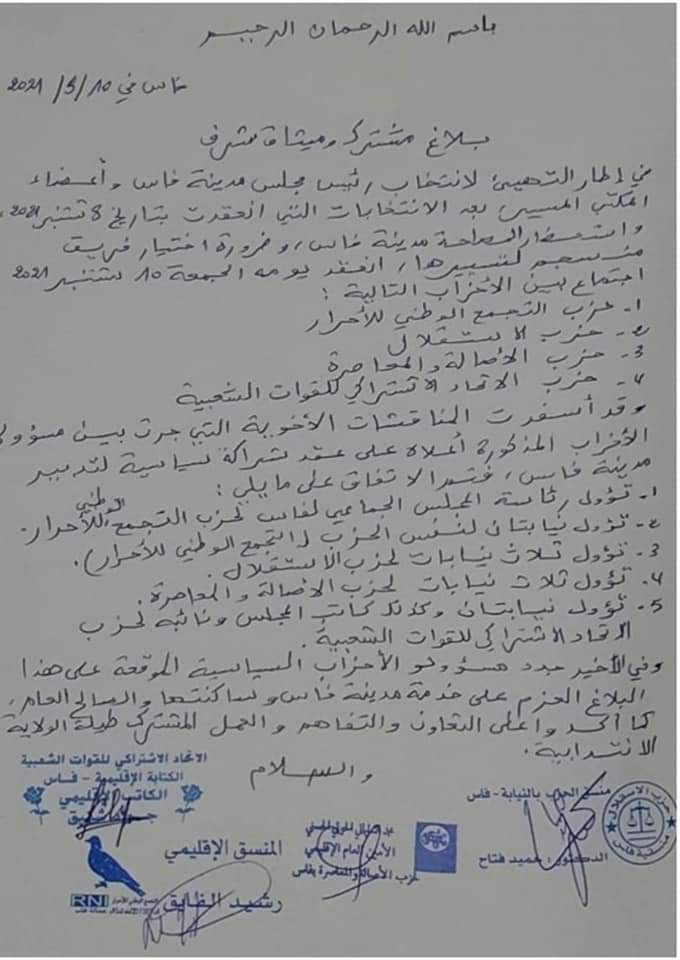 باسم الله الرحمان الرحيم
فاس في 10/5/2021
بلاغ مشترك وميثاق شرف
في إطار التهيئ لانتخاب رئيس مجلس مدينة فاس وأعضاء
المكتب المسير، بعد الانتخابات التي انعقدت بتاريخ 8 شتنبر 2021،
واستحضارا لمصلحة مدينة فاس، وضرورة اختيار فريق
منسجم لتسييرها، انعقد يومه الجمعة 10 شتنبر 2021
اجتماع بين الأحزاب التالية :
1- حزب التجمع الوطني للأحرار
2- حزب الاستقلال
3- حزب الأصالة والمعاصرة
4- حزب الاتحاد الاشتراكي للقوات الشعبية
وقد أسفرت المناقشات الأخوية التي جرت بين مسؤولي
الأحزاب المذكورة أعلاه على عقد شراكة سياسية لتدبير
مدينة فاس، فتم الاتفاق على ما يلي :
1- تؤول رئاسة المجلس الجماعي لفاس لحزب التجمع الوطني للأحرار.
2- تؤول نيابتان لنفس الحزب (التجمع الوطني للأحرار).
3- تؤول ثلاث نيابات لحزب الاستقلال.
4- تؤول ثلاث نيابات لحزب الأصالة والمعاصرة.
5- تؤول نيابتان وكذلك كاتب المجلس ونائبه لحزب
الاتحاد الاشتراكي للقوات الشعبية.
وفي الأخير جدد مسؤولو الأحزاب السياسية الموقعة على هذا
البلاغ العزم على خدمة مدينة فاس وساكنتها والصالح العام،
كما أكدوا على التعاون والتفاهم والعمل المشترك طيلة الولاية
الانتدابية.
والسلام
الاتحاد الاشتراكي للقوات الشعبية
الكتابة الإقليمية - فاس
الكاتب الإقليمي
منسق الحزب بالنيابة - فاس
الدكتور: حميد فتاح
حزب الاستقلال
الأمين العام الإقليمي
حزب الأصالة والمعاصرة بفاس
المنسق الإقليمي
رشيد الفايق
RNI